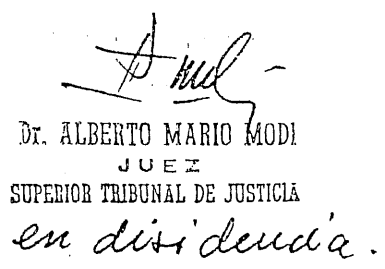 Dr. ALBERTO MARIO MODI
JUEZ
SUPERIOR TRIBUNAL DE JUSTICIA
en disidencia.